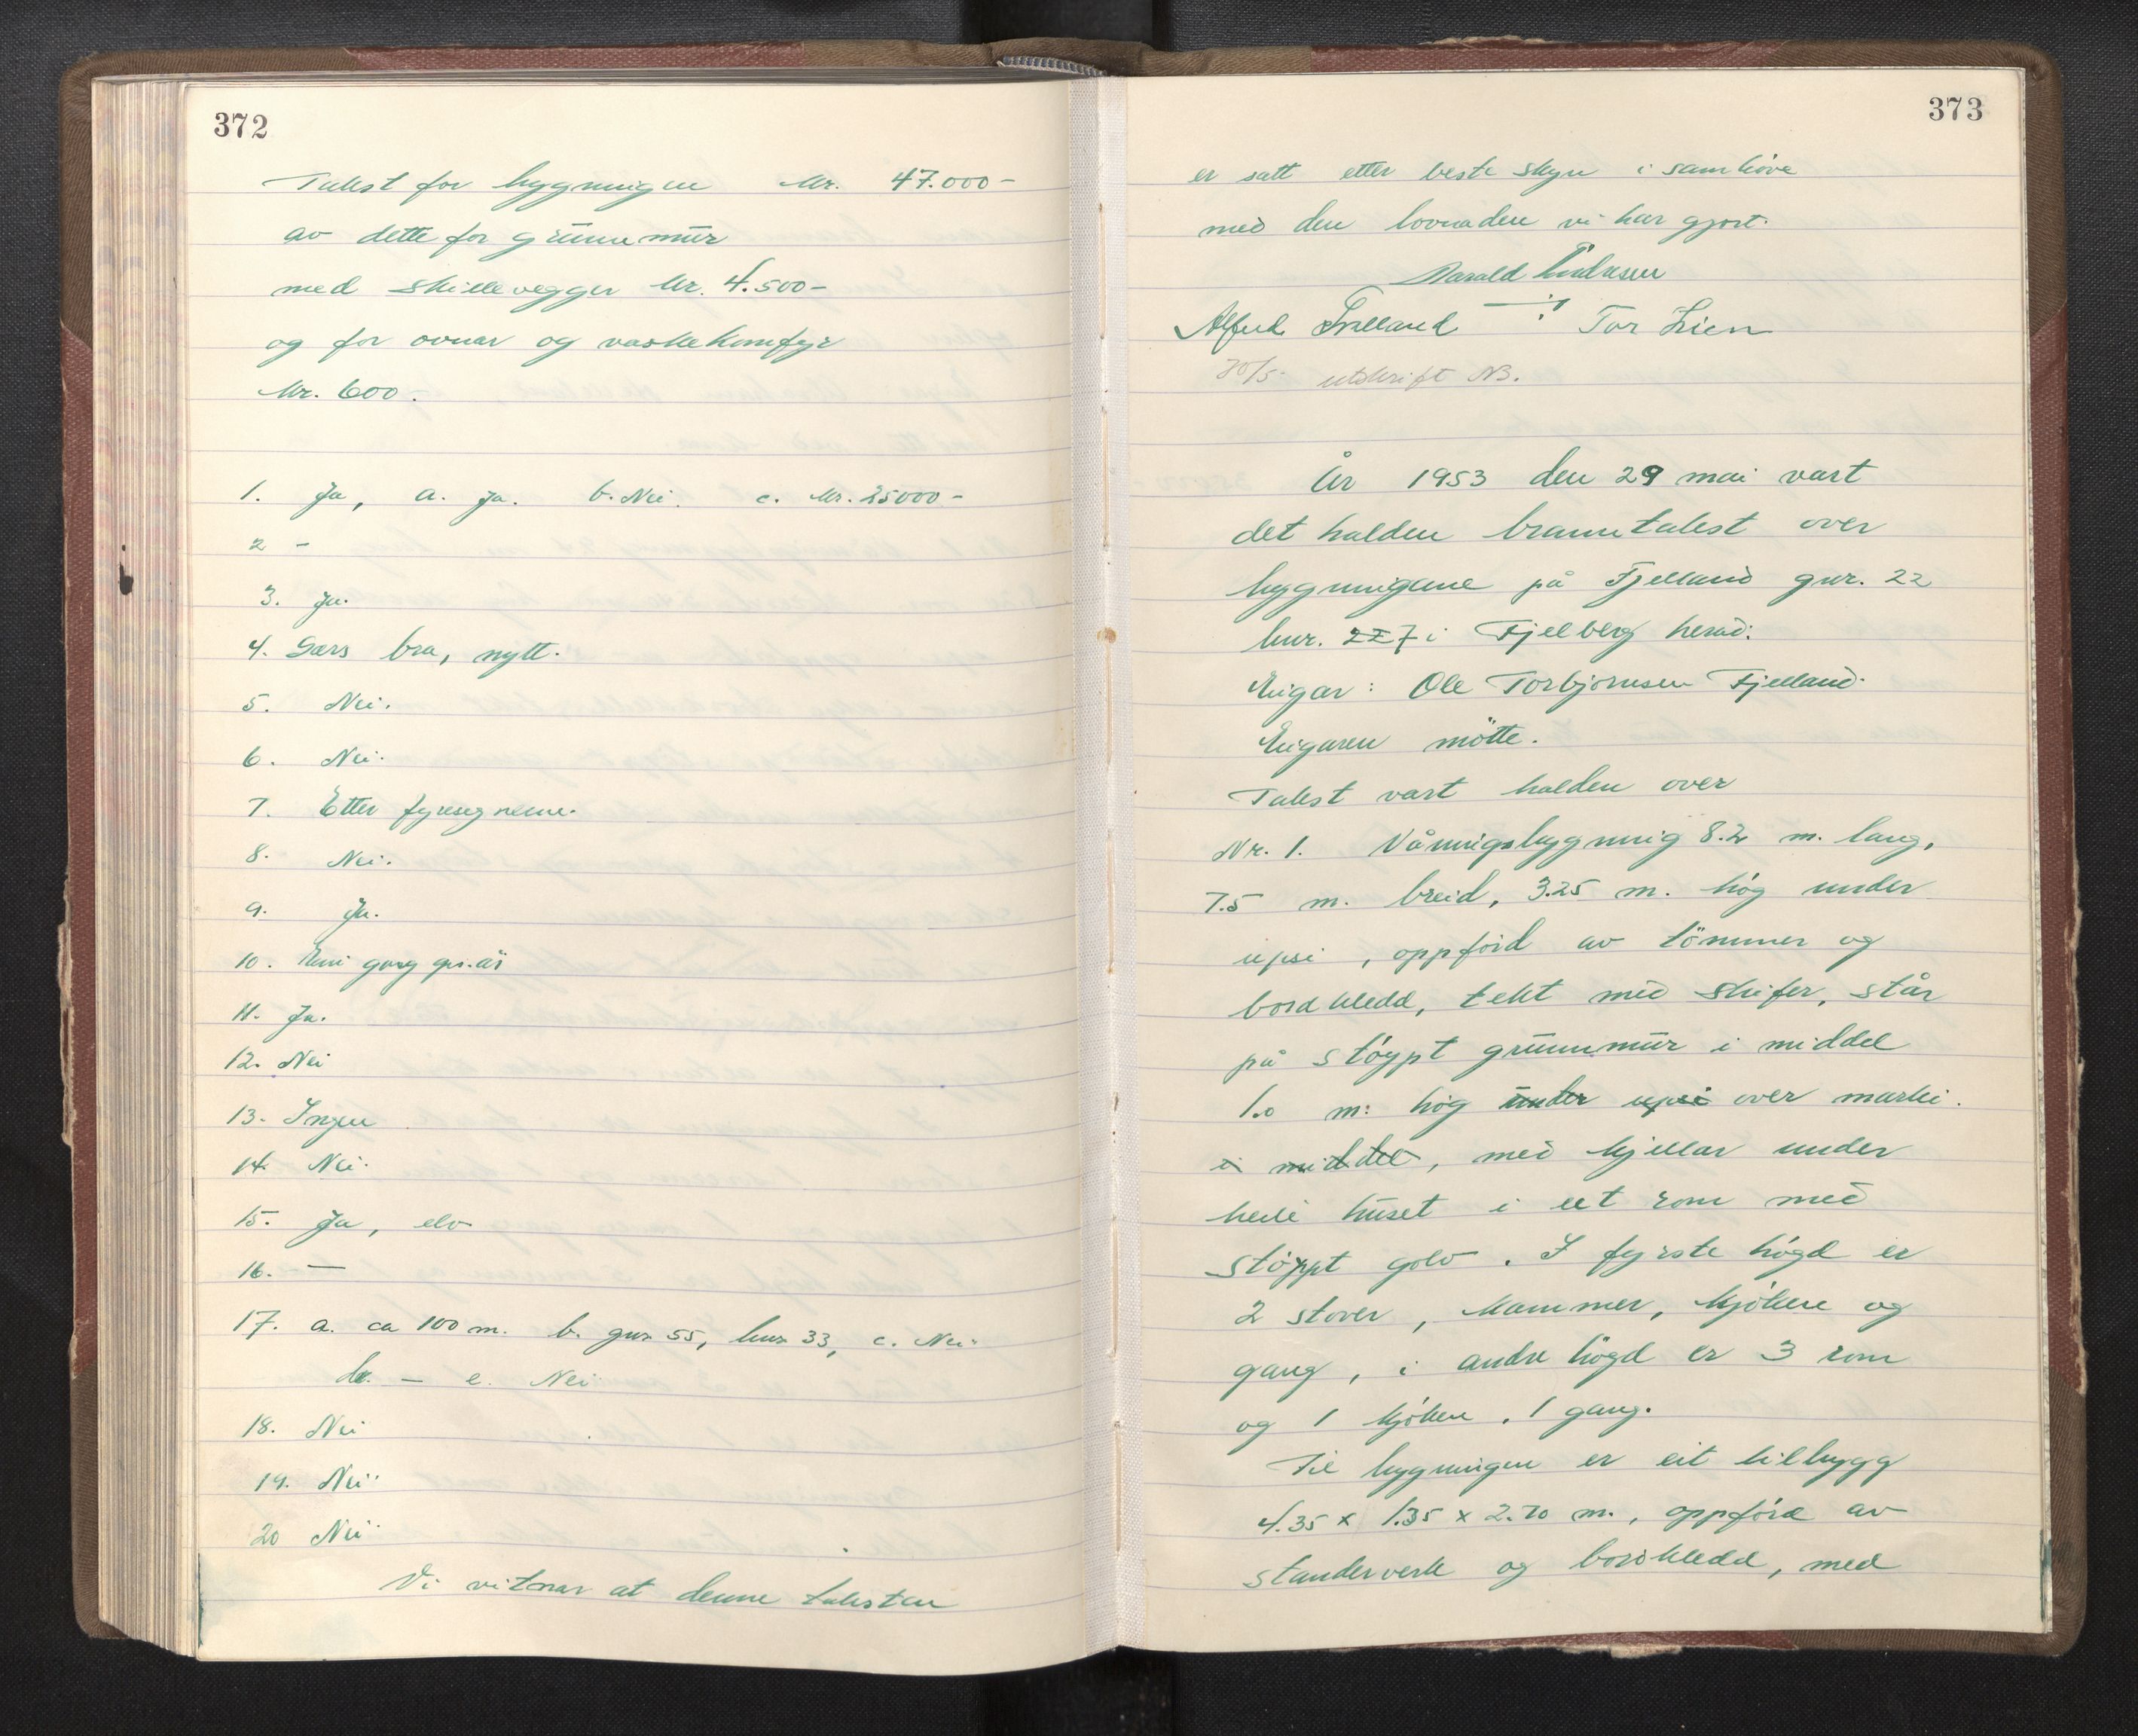 372
Takst for bygningen kr. 47.000-
av dette for grunnmur
med skillevegger kr. 4.500-
og for ovnar og vaskekomfyr
kr. 600.
1. Ja, a. Ja. b. Nei. c. kr. 25000-
2 -
3. Ja.
4. Særs bra, nytt.
5. Nei.
6. Nei.
7. Etter fyresegnene.
8. Nei.
9. Ja.
10. Ein gong pr. år
11. Ja.
12. Nei
13. Ingen
14. Nei.
15. Ja, elv
16. —
17. a. ca 100 m. b. gnr 55, bnr 33, c. Nei.
d. — e. Nei
18. Nei
19. Nei
20 Nei
Vi vitnar at denne taksten
373
er satt etter beste skyn i samhöve
med den lovnaden vi har gjort.
Harald
Alfred Tor Lien
30/5- utskrift NB.
År 1953 den 29 mai vart
det halden branntakst over
bygningane på Fjelland gnr. 22
bnr. 22 7 i Fjelberg herad:
Eigar: Ole Torbjørnsen Fjelland.
Eigaren mötte.
Takst vart halden over
Nr. 1. Våningsbygning 8.2 m. lang,
7.5 m. breid, 3.25 m. høg under
upsi, oppförd av tömmer og
bordkledd, tekt med skifer, står
på stöypt grunnmur i middel
1.0 m: høg under upsi over marki.
i middel, med kjellar under
heile huset i eet rom med
stöypt golv. I fyrste högd er
2 stover, kammer, kjöken og
gang, i andre högd er 3 rom
og 1 kjöken, 1 gang.
Til bygningen er eit tilbygg
4.35 x 1.35 x 2.70 m., oppförd av
standerverk og bordkledd, med